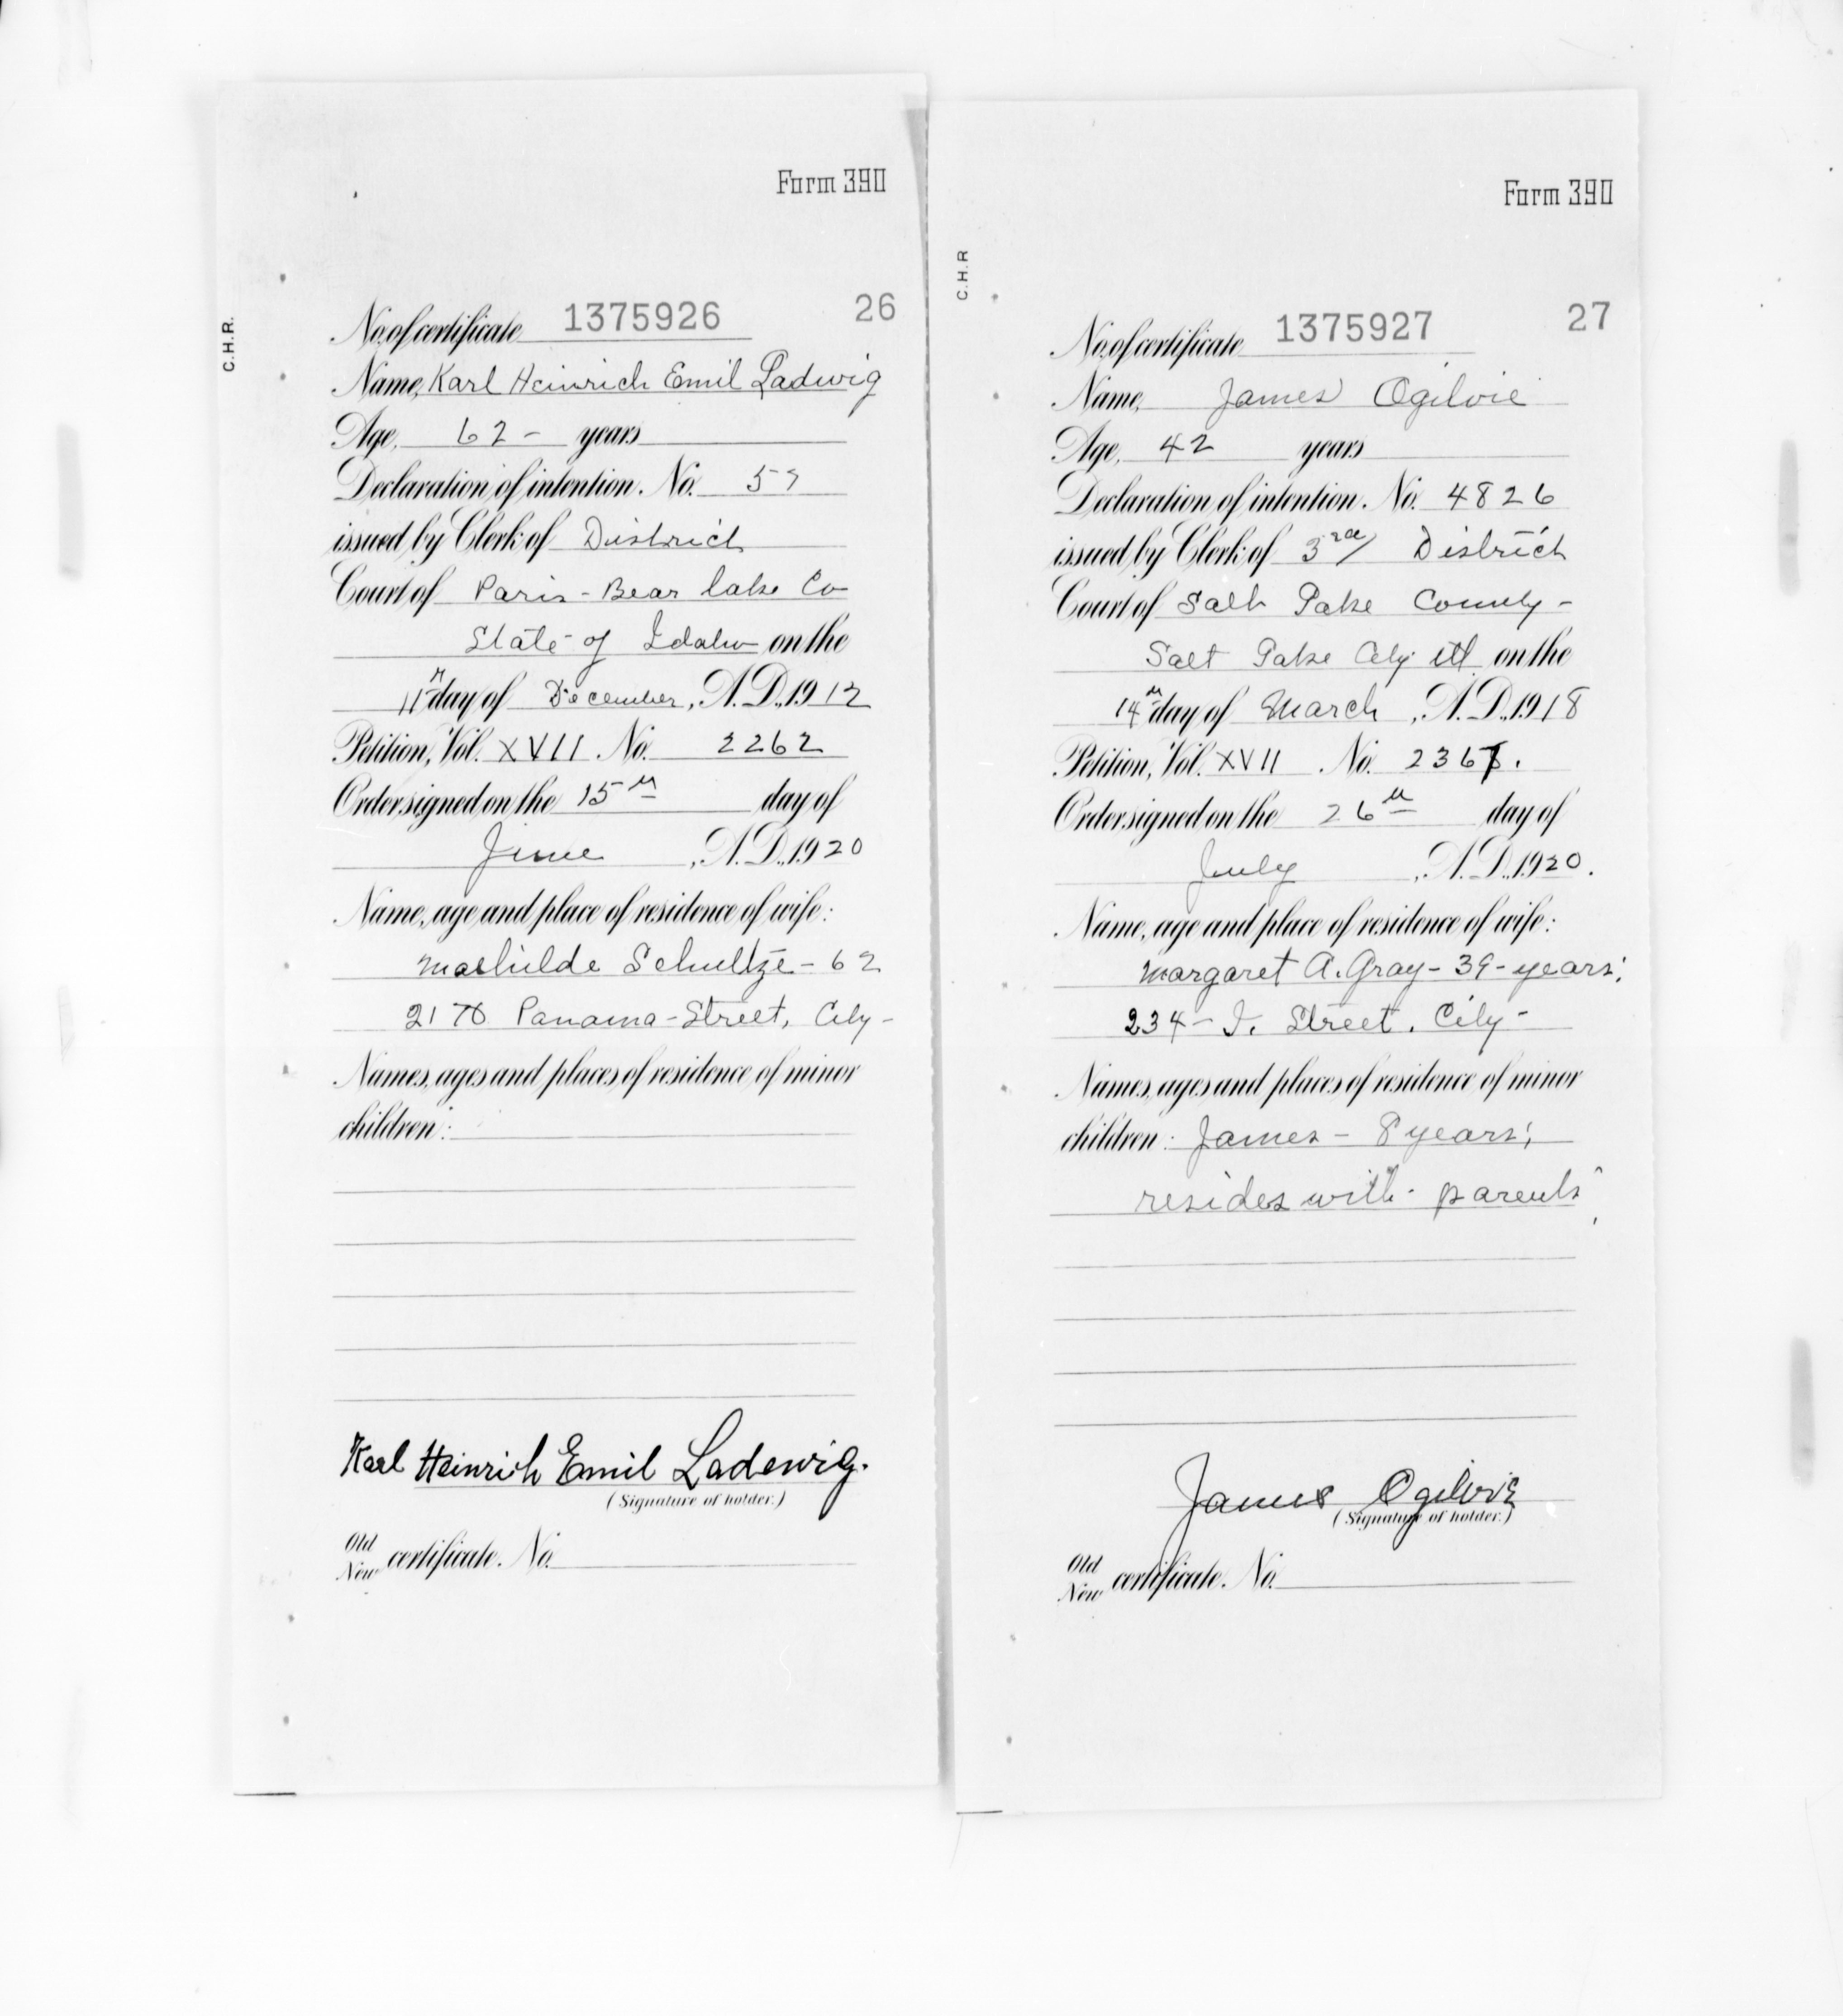 Form 390
C.H.R.
26
No. of certificate 1375926
Name, Karl Heinrich Emil Ladwig
Age, 62 - years
Declaration of intention. No. 57
issued by Clerk of District
Court of Paris - Bear lake Co
State of Idaho on the
11th day of December, A.D., 1912
Petition, Vol. XVII No. 2262
Order signed on the 15th day of
June, A.D., 1920
Name, age and place of residence of wife:
Mathilde Schultze - 62
Panama - Street, City -
Names, ages and places of residence of minor
children:
Karl Heinrich Emil Ladewig.
(Signature of holder.)
Old
New certificate. No.
Form 390
C.H.R
27
No. of certificate 1375927
Name, James Ogilvie
Age, 42 years
Declaration of intention. No. 4826
issued by Clerk of 3rd District
Court of Salt Lake County -
Salt Lake City Ut on the
14th day of March, A.D., 1918
Petition, Vol. XVII No.
Order signed on the 26th day of
July, A.D., 1920.
Name, age and place of residence of wife:
Margaret A. Gray - 39 - years;
234 - I. Street. City -
Names, ages and places of residence of minor
children: James - 8 years;
resides with parents
James Ogilvie
(Signature of holder.)
Old
New certificate. No.